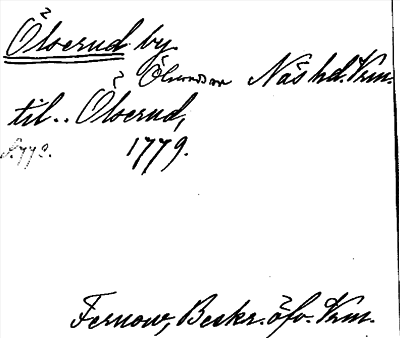 Ölserud by
Näs hd. Vrm.
til.. Ölserud,
1779.
Fernow, Beskr. öfv. Vrm.